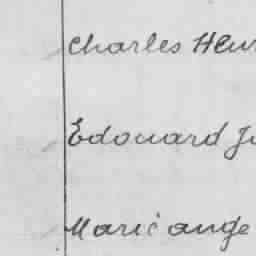 Charles Hen
Edouard Ju
Marie ange